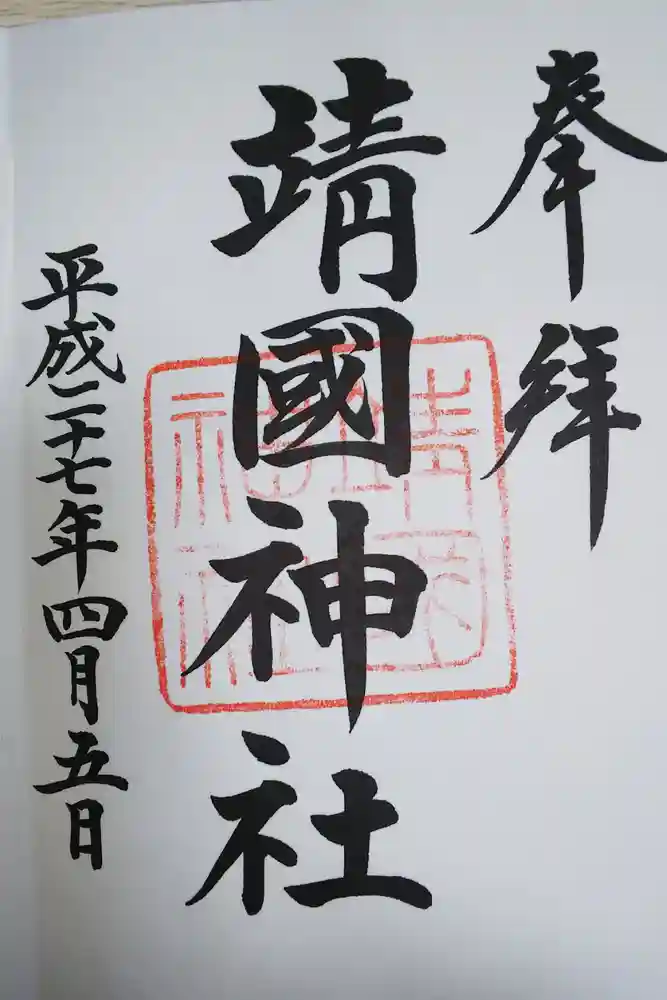 奉拝
靖國神社
靖國
神社
平成二十七年四月五日